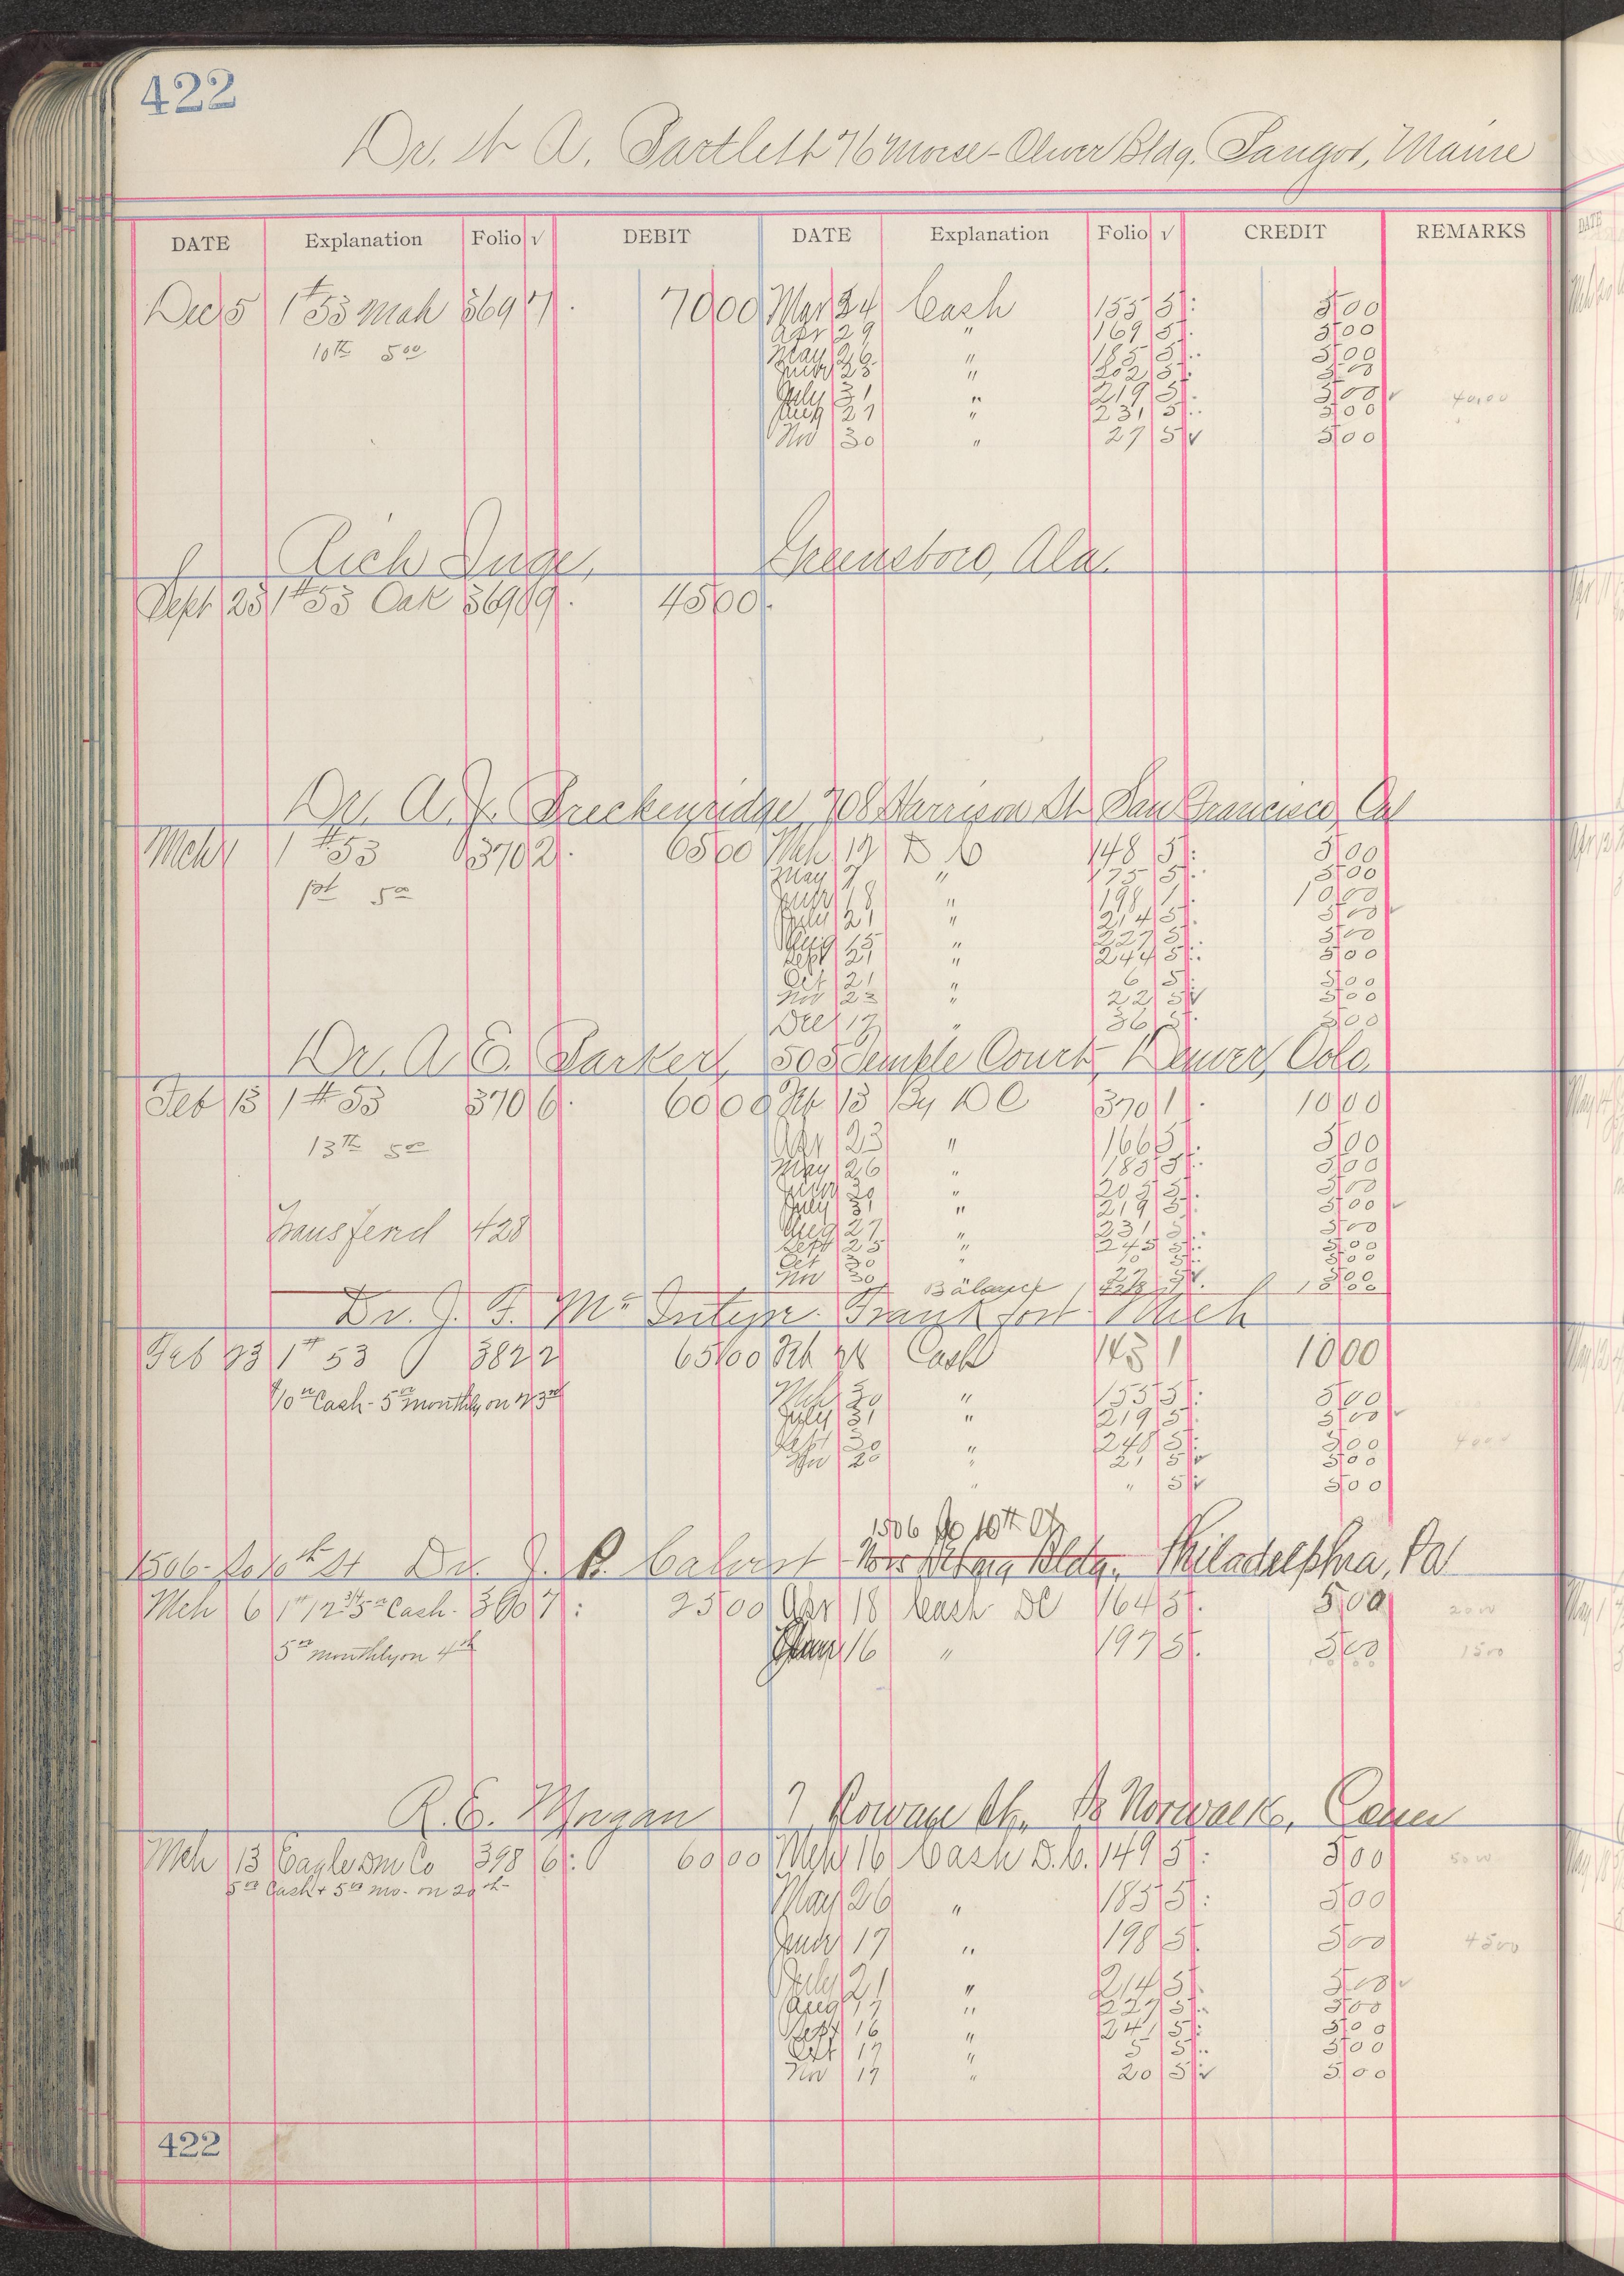 422
Dr. W A. Bartlett 76 Morse-Oliver Bldg. Bangor, Maine
DATE Explanation Folio √ DEBIT DATE Explanation Folio √ CREDIT REMARKS
Dec 5 1 # 53 Mah 369 7 70 00 Mar 24 Cash 155 5 5 00
10th 5 00 Apr 29 " 169 5 5 00
May 26 " 185 5 5 00
June 25 " 202 5 5 00
July 31 " 219 5 5 00 √ 40.00
Aug 27 " 231 5 5 00
Nov 30 " 27 5 √ 5 00
Rich Inge, Greensboro, Ala.
Sept 25 1 # 53 Oak 369 9 45 00
Dr. A. J. Breckenridge, 708 Harrison St San Francisco, Cal
Mch 1 # 53 370 2 65 00 Mch 17 D C 148 5 5 00
pd 5 00 May 7 " 175 5 5 00
June 18 " 198 1 10 00
July 21 " 214 5 5 00 √
Aug 15 " 227 5 5 00
Sept 21 " 244 5 5 00
Oct 21 " 6 5 5 00
Nov 23 " 22 5 √ 5 00
Dec 17 " 36 5 5 00
Dr. A E. Barker, 505 Temple Court, Denver, Colo.
Feb 13 1 # 53 370 6 60 00 Feb 13 By D C 370 1 10 00
13th 5 00 Apr 23 " 166 5 5 00
May 26 " 185 5 5 00
June 30 " 205 5 5 00
July 31 " 219 5 5 00 √
Transferred 428 Aug 27 " 231 5 5 00
Sept 25 " 245 5 5 00
Oct 30 " 10 5 5 00
Nov 30 Balance 5 00
Dr. J. F. McIntyre. Frankfort Mich
Feb 23 1 # 53 382 2 65 00 Feb 28 Cash 143 1 10 00
10 00 Cash - 5 00 monthly on 23rd Mch 30 " 155 5 5 00
July 31 " 219 5 5 00 √
Sept 30 " 248 5 5 00 40 00
Nov 20 " 21 5 √ 5 00
" " 5 √ 5 00
1506 So 10th St
1506 - So 10th St Dr. J. R. Calvert Bldg. Philadelphia, Pa
Mch 6 1 # 12 3/4 5 00 Cash. 390 7 25 00 Apr 18 Cash DC 164 5 5 00 20 00
5 00 monthly on 4th June 16 " 197 5 5 00 15 00
R. E. Morgan 7 Rowayn St. So Norwalk, Conn
Mch 13 Eagle Dm Co 398 6 60 00 Mch 16 Cash D.C. 149 5 5 00 50 00
5 00 Cash + 5 00 mo. on 20th May 26 " 185 5 5 00
June 17 " 198 5 5 00 45 00
July 21 " 214 5 5 00 √
Aug 17 " 227 5 5 00
Sept 16 " 241 5 5 00
Oct 17 " 5 5 5 00
Nov 17 " 20 5 √ 5 00
422